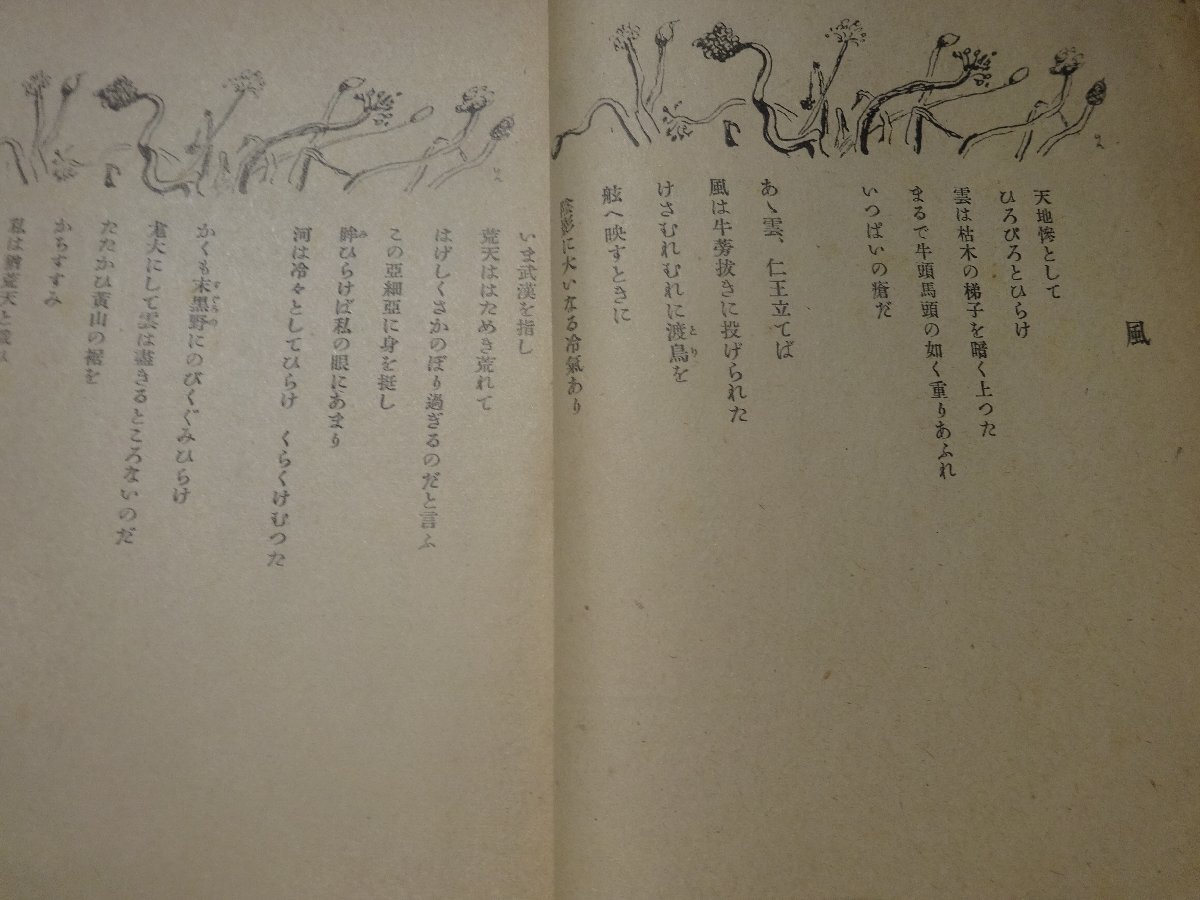 風
天地慘として
ひろびろとひらけ
雲は枯木の梯子を暗く上つた
まるで牛頭馬頭の如く重りあふれ
いつぱいの瘡だ
あゝ雲、仁王立てば
風は牛蒡拔きに投げられた
けさむれむれに渡鳥を
とり
舷へ映すときに
陰影に大いなる冷氣あり
いま武漢を指し
荒天ははためき荒れて
はげしくさかのぼり過ぎるのだと言ふ
この亞細亞に身を挺し
眸ひらけば私の眼にあまり
み
河は冷々としてひらけ くらくけむつた
かくも末黑野にのびくぐみひらけ
すぐろの
大にして雲は盡きるところないのだ
たたかひ黃山の裾を
かちすすみ
私は荒天と